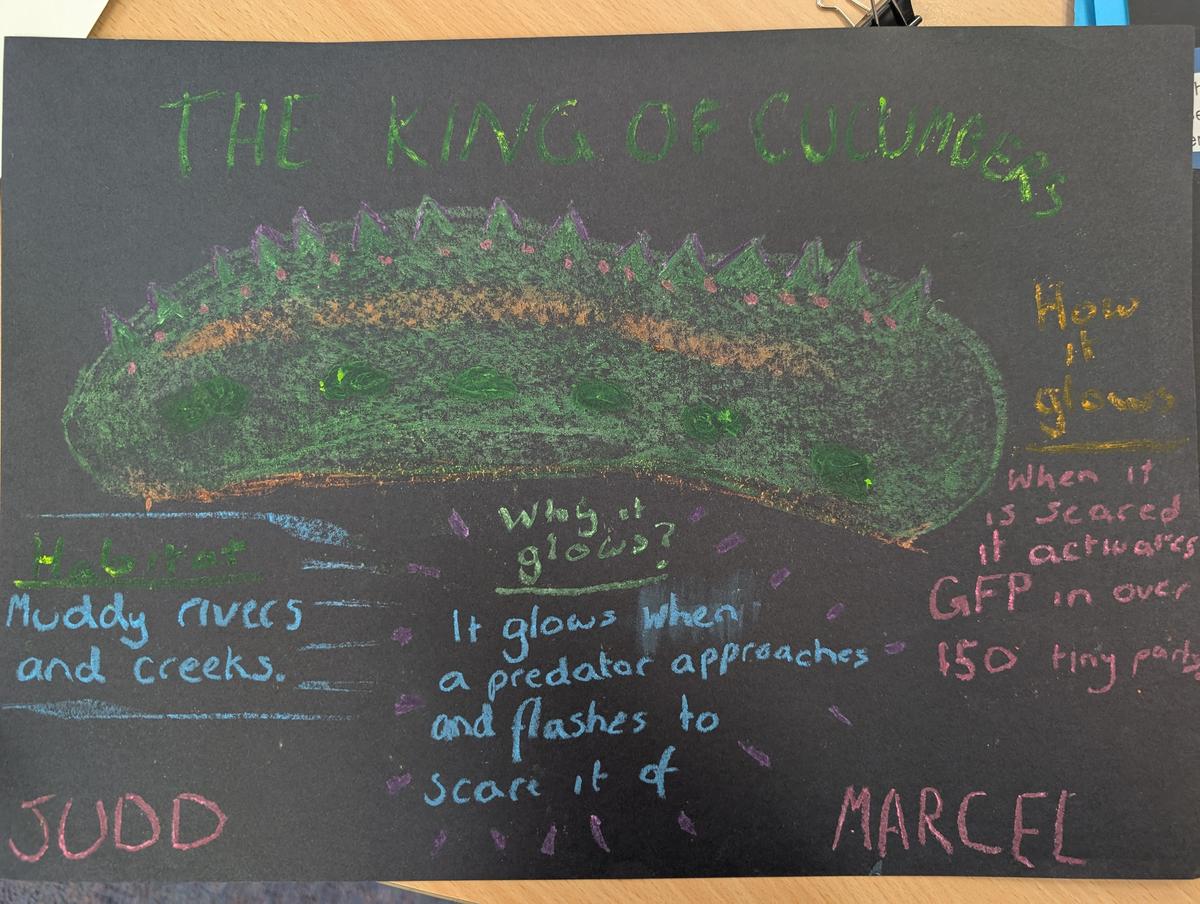 THE KING OF CUCUMBERS
How
it
glows
When it
is scared
it activates
GFP in over
150 tiny parts
Why it
glows?
It glows when
a predator approaches
and flashes to
scare it of
Habitat
Muddy rivers
and creeks.
JUDD
MARCEL